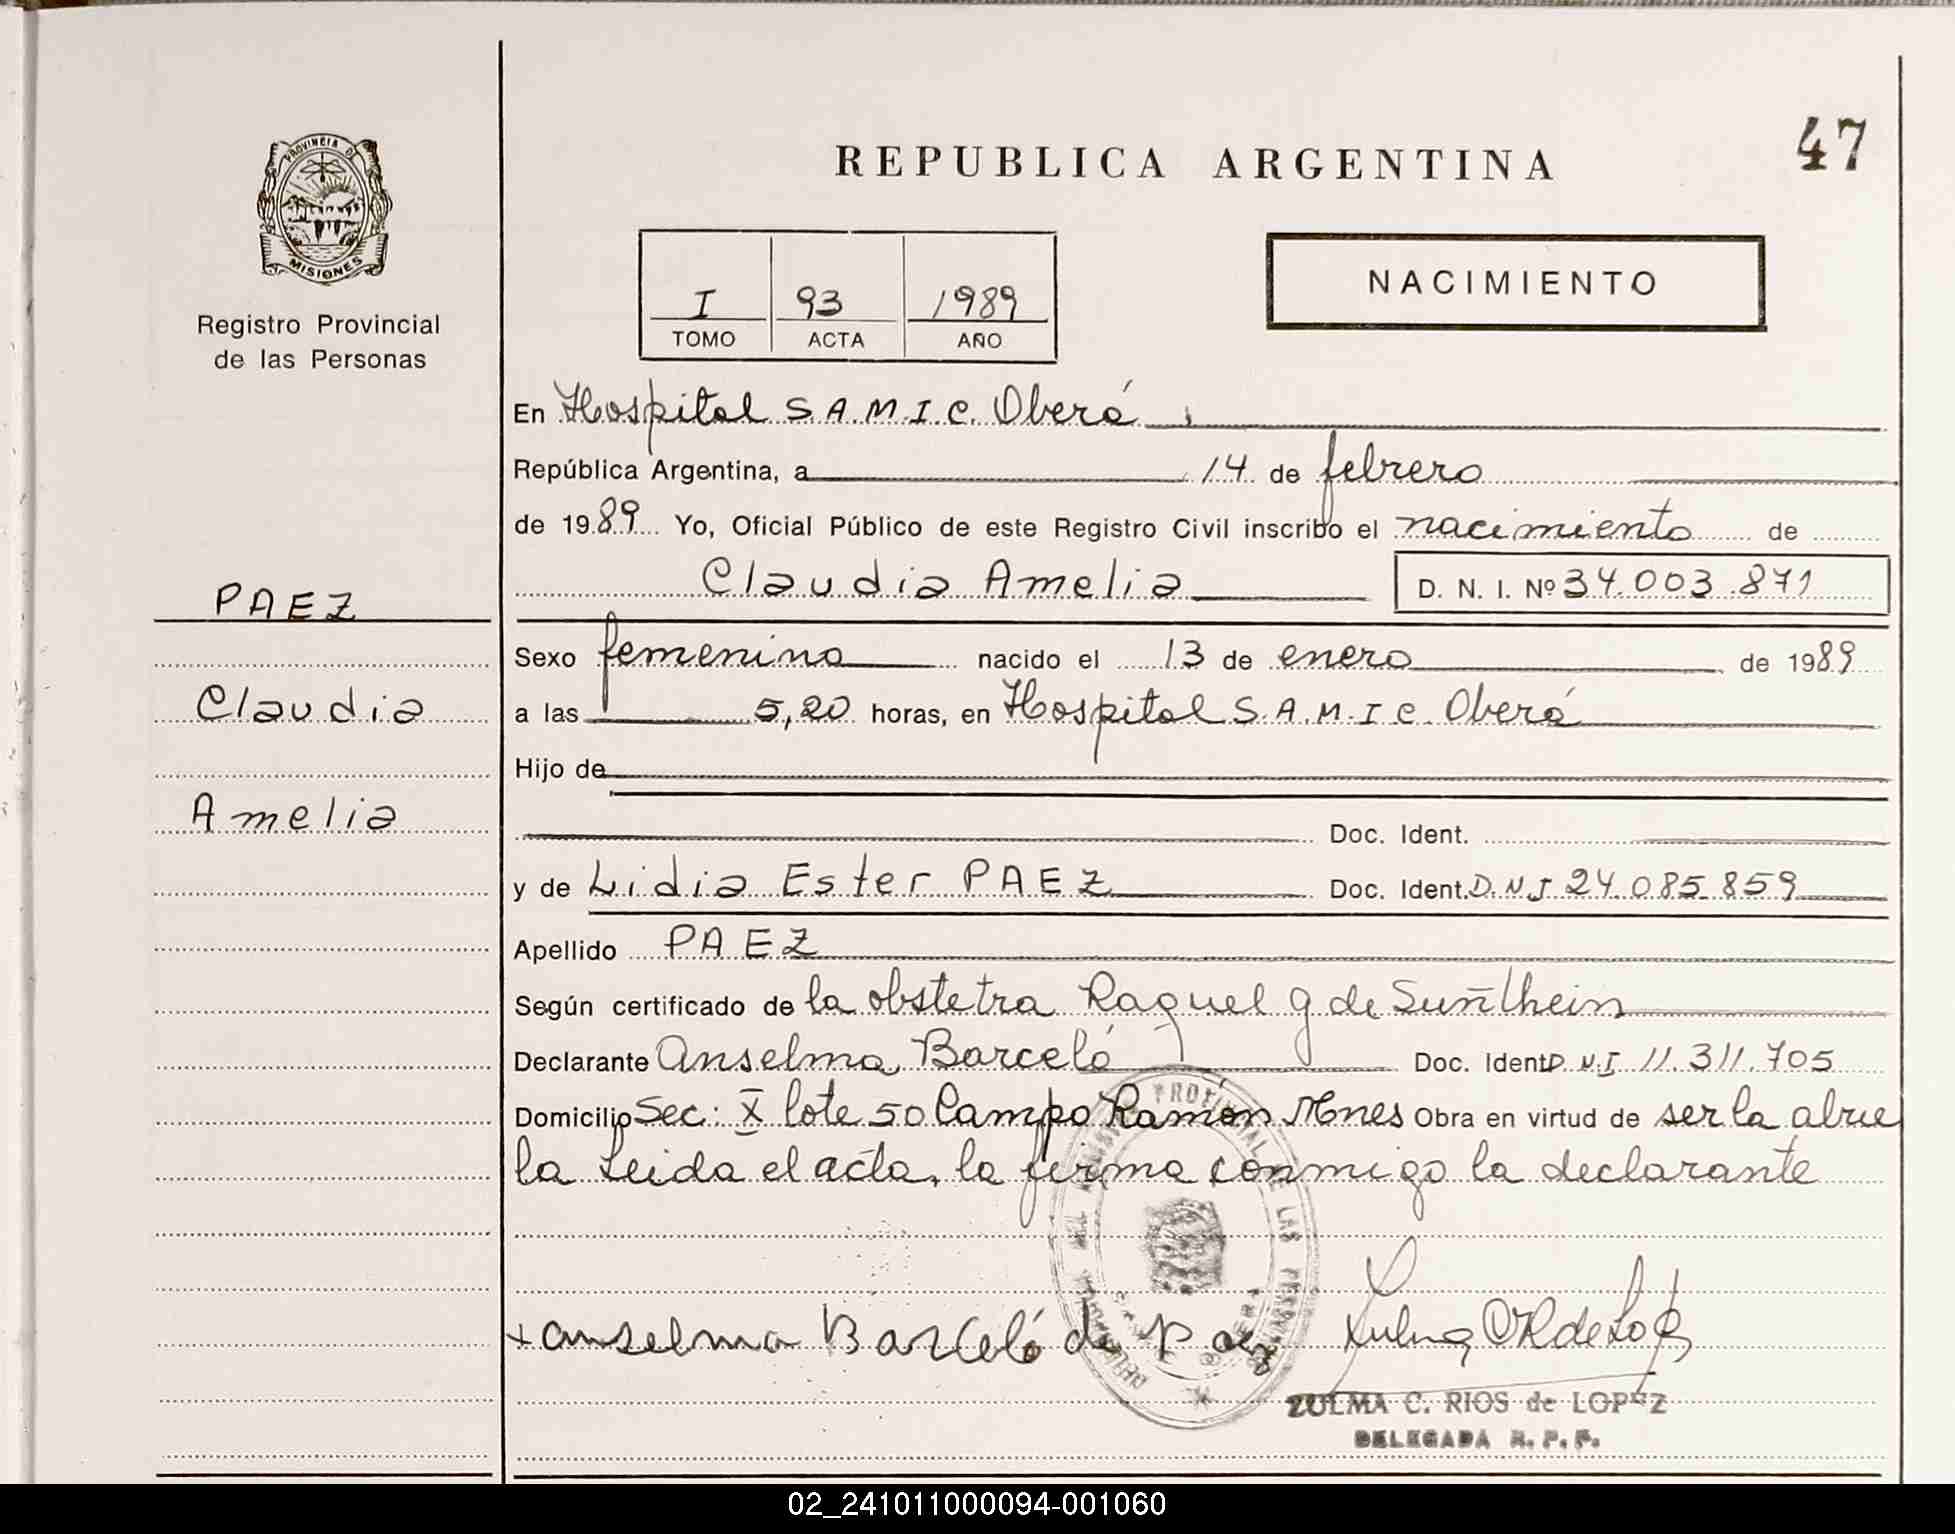 PROVINCIA DE
MISIONES
Registro Provincial
de las Personas
PAEZ
Claudia
Amelia
REPUBLICA ARGENTINA
47
I 93 1989
TOMO ACTA AÑO
NACIMIENTO
En Hospital S.A.M.I.C. Oberá
República Argentina, a 14 de febrero
de 1989 Yo, Oficial Público de este Registro Civil inscribo el nacimiento de
Claudia Amelia D. N. I. Nº 34.003.871
Sexo femenino nacido el 13 de enero de 1989
a las 5,20 horas, en Hospital S.A.M.I.C. Oberá
Hijo de
Doc. Ident.
y de Lidia Ester PAEZ Doc. Ident. D.N.I 24.085.859
Apellido PAEZ
Según certificado de la obstetra Raquel G de
Declarante Anselma Barceló Doc. Ident D.N.I 11.311.705
Domicilio Sec: X lote 50 Campo Ramón Mnes Obra en virtud de ser la abue
la Leida el acta, la firma conmigo la declarante
x anselma Barceló de Paez
ZULMA C. RIOS de LOPEZ
DELEGADA R. P. P.
02_241011000094-001060